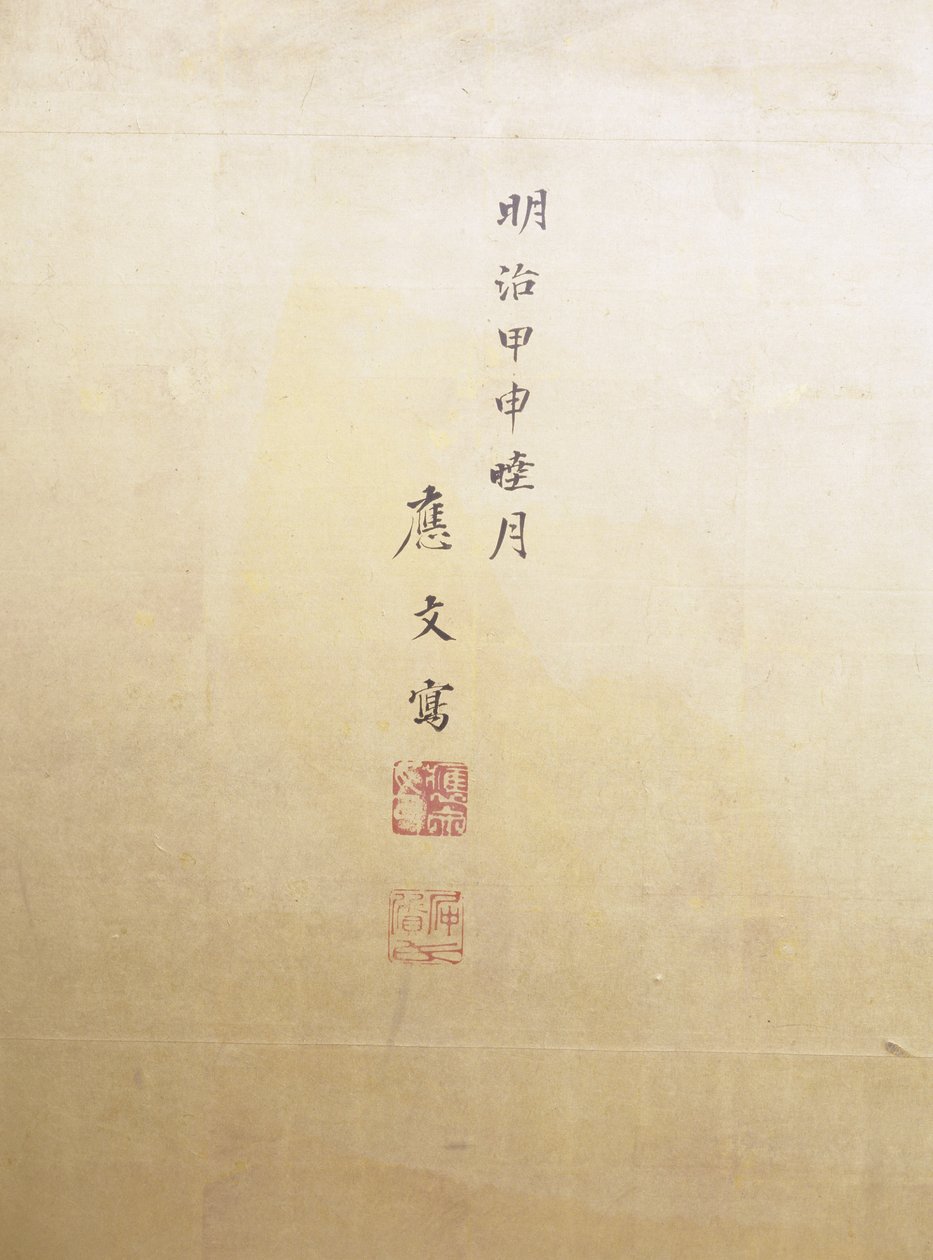 明治甲申睦月
應文寫